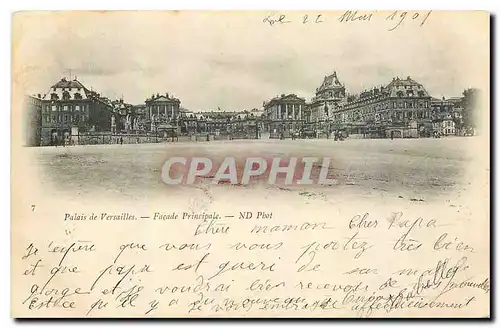 Le 22 Mai 1901
CPAPHIL
7
Palais de Versailles. — Façade Principale. — ND Phot
Chère maman Cher Papa
J'espère que vous vous portez très bien
et que papa est gueri de son mal de
gorge et je voudrai bien recevoir de
Est ce qu'il y a du nouveau
je vous embrasse affectueusement